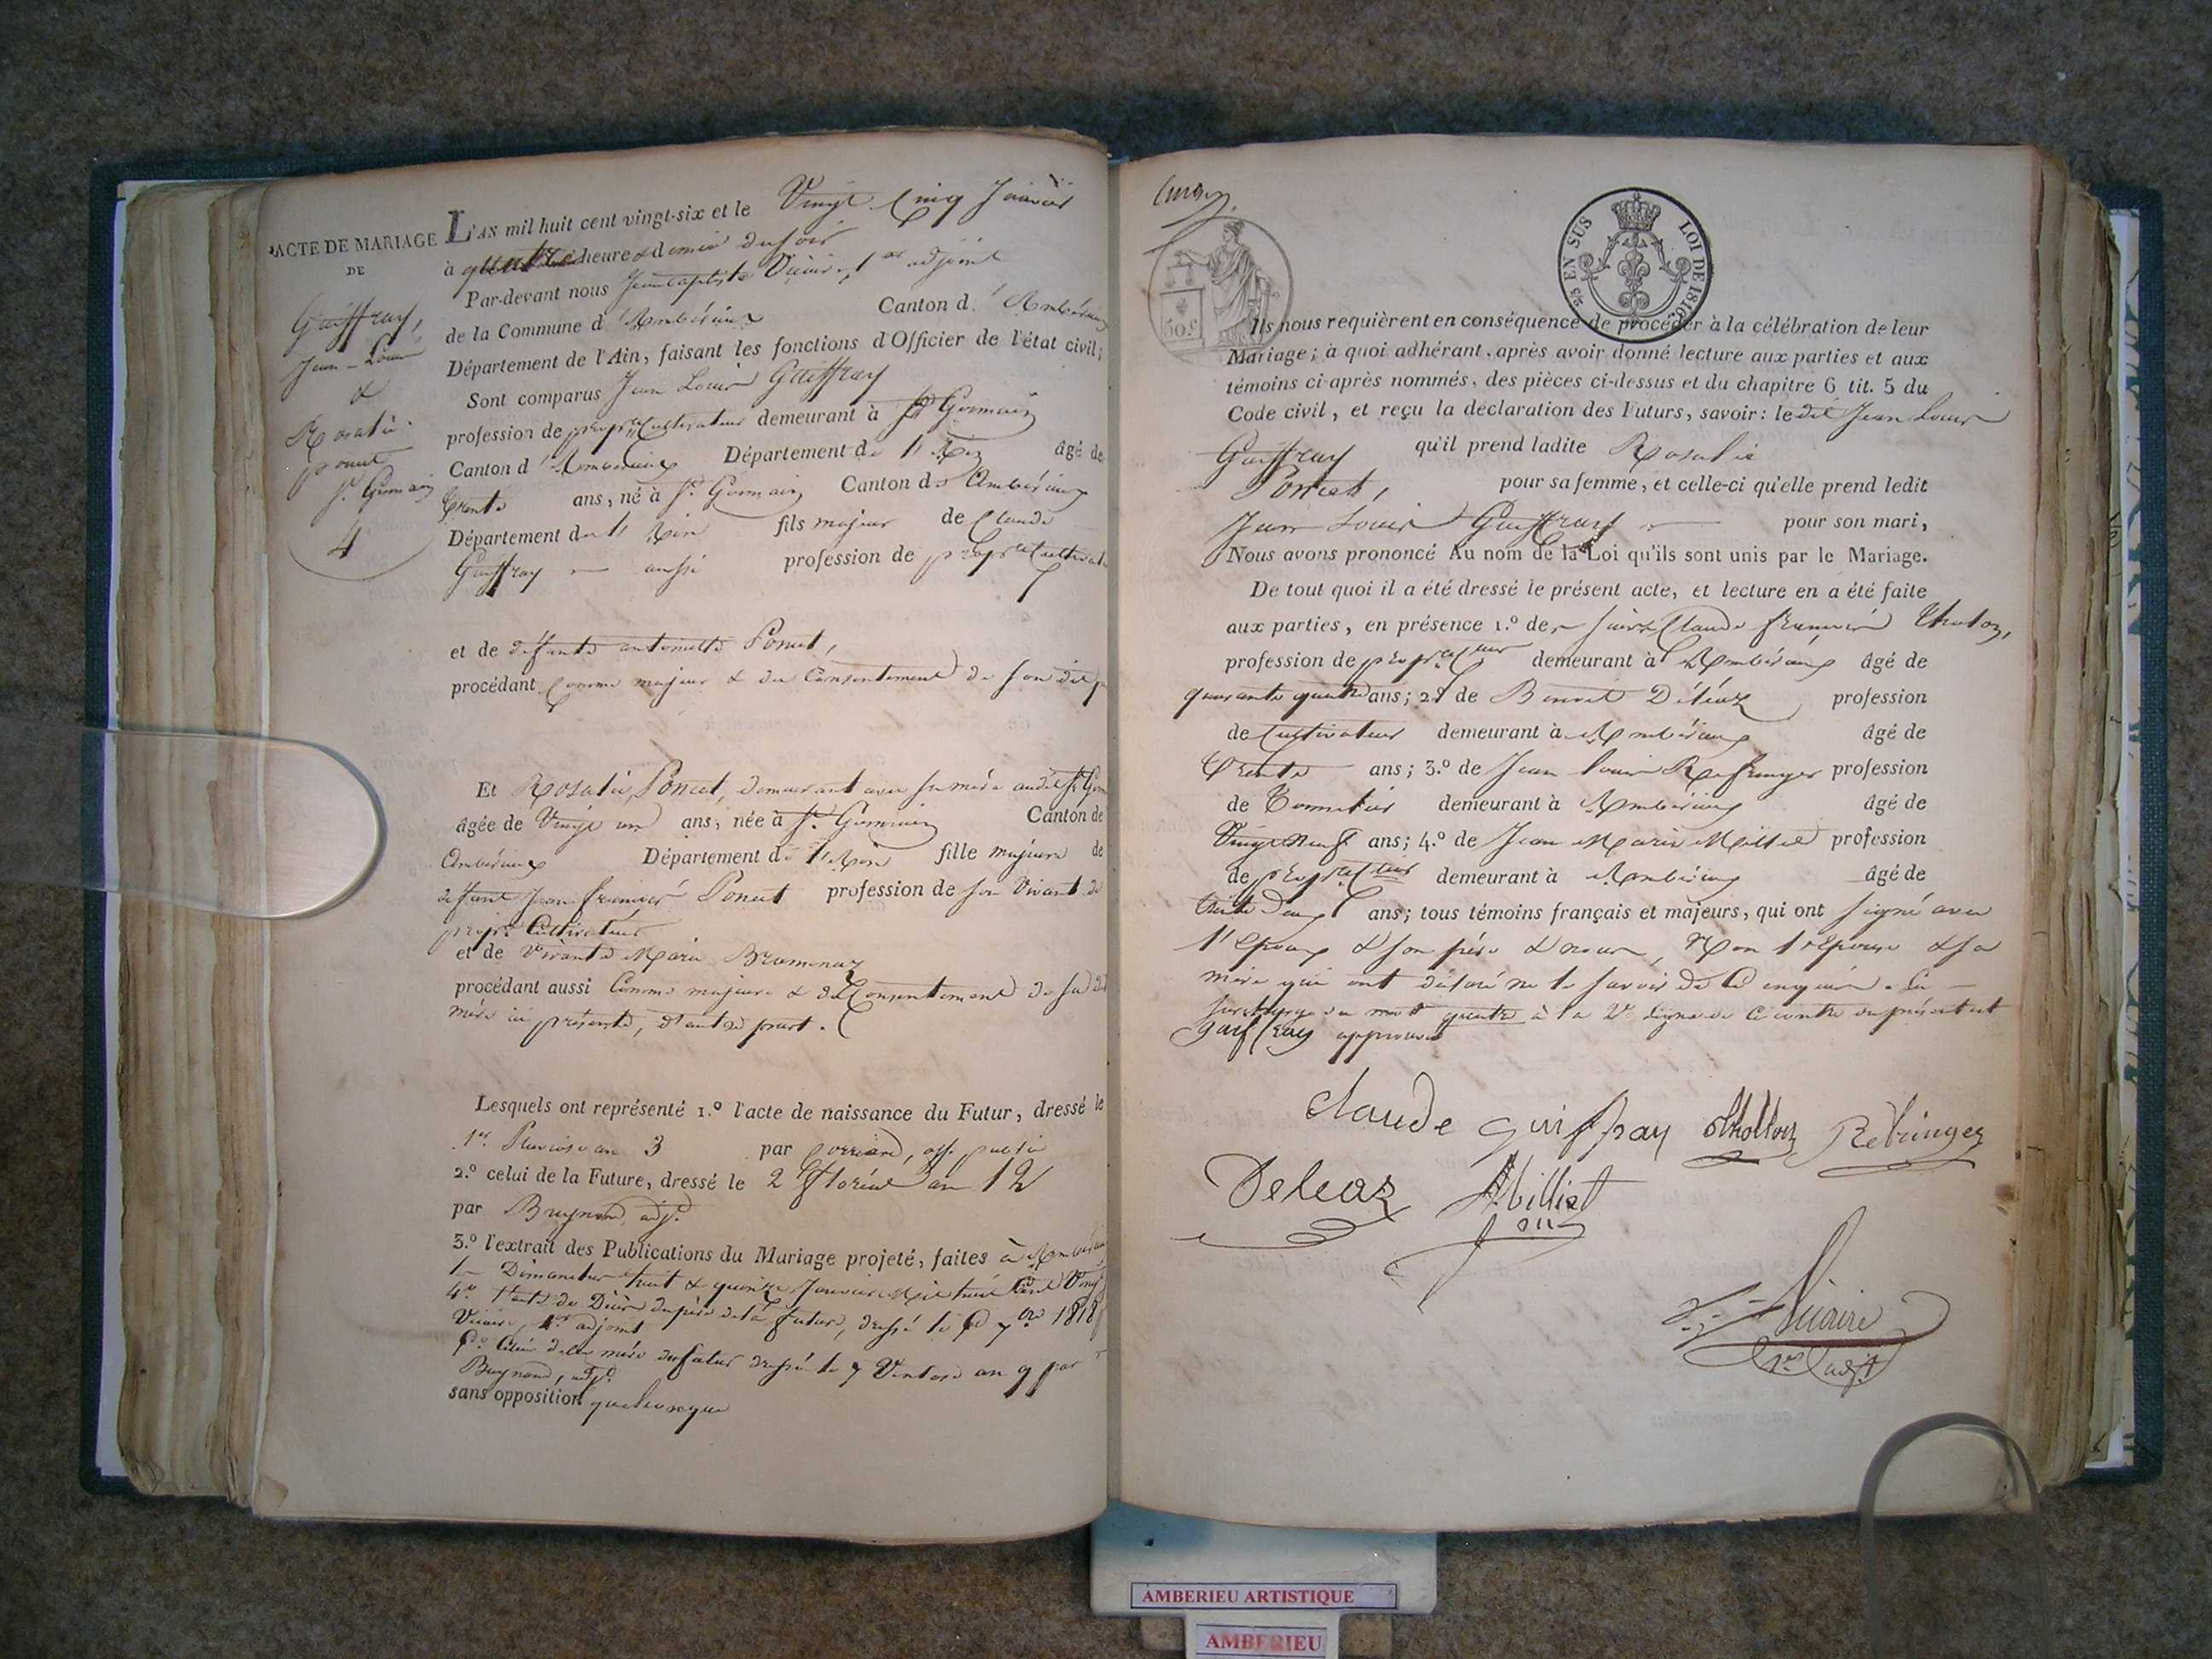 ACTE DE MARIAGE
DE
Guiffray,
Jean-Louis
&
Rosalie
poncet
St. Germain
4
L'AN mil huit cent vingt-six et le Vingt Cinq Janvier
à quatre heures & demie du soir
Par-devant nous Jean Baptiste Vicaire, 1er adjoint
de la Commune d'Ambérieux Canton d'Ambérieux
Département de l'Ain, faisant les fonctions d'Officier de l'état civil;
Sont comparus Jean Louis Guiffray
profession de propre. Cultivateur demeurant à St Germain
Canton d'Ambérieux Département de l'Ain âgé de
trente ans, né à St. Germain Canton de Ambérieux
Département de l'Ain fils majeur de Claude
Guiffray aussi profession de propre. Cultivat
et de défunte antoinette Poncet,
procédant Comme majeur & du Consentement de son dit
Et Rosalie Poncet, demeurant avec sa mère audit St Germ
âgée de Vingt un ans, née à St. Germain Canton de
Ambérieux Département de l'Ain fille majeure de
défunt Jean françois Poncet profession de son Vivant de
propre. Cultivateur
et de Vivante Marie Bramenaz
procédant aussi Comme majeure & du Consentement de sa dite
mère ici présente, d'autre part.
Lesquels ont représenté 1.º l'acte de naissance du Futur, dressé le
1er. Pluviose an 3 par off. public
2.º celui de la Future, dressé le 2 floréal an 12
par Brugnond, adjt.
3.º l'extrait des Publications du Mariage projeté, faites à Ambérieux
les Dimanches huit & quinze Janvier Mil huit Cent Vingt
4º l'acte de Décès du père de la future, dressé le 7bre 1818
Vicaire, 1er adjoint
5º Celui de la mère du futur dressé le 7 Ventose an 9 par
Brugnond, adjt.
sans opposition quelconque
50 c.
2/5 EN SUS LOI DE 1816.
Ils nous requièrent en conséquence de procéder à la célébration de leur
Mariage; à quoi adhérant, après avoir donné lecture aux parties et aux
témoins ci-après nommés, des pièces ci-dessus et du chapitre 6 tit. 5 du
Code civil, et reçu la déclaration des Futurs, savoir: le dit Jean Louis
Guiffray qu'il prend ladite Rosalie
Poncet, pour sa femme, et celle-ci qu'elle prend ledit
Jean Louis Guiffray pour son mari,
Nous avons prononcé Au nom de la Loi qu'ils sont unis par le Mariage.
De tout quoi il a été dressé le présent acte, et lecture en a été faite
aux parties, en présence 1.º de sieurs Claude françois Tholon,
profession de propre demeurant à Ambérieux âgé de
quarante quatre ans; 2.º de Benoit Déléaz profession
de Cultivateur demeurant à Ambérieux âgé de
Trente ans; 3.º de Jean louis Refringer profession
de Tonnelier demeurant à Ambérieux âgé de
Vingt neuf ans; 4.º de Jean Marie Milliet profession
de propre demeurant à Ambérieux âgé de
trente deux ans; tous témoins français et majeurs, qui ont signé avec
l'Epoux & son père & nous, Non l'Epouse & sa
mère qui ont déclaré ne le savoir de ce enquis. La
surcharge du mot quatre à la 2e ligne de Ci contre du présent est
guiffray approuvée
claude guiffray Thollon Refringer
Deleaz Milliet
Vicaire
1er adjt
AMBERIEU ARTISTIQUE
AMBERIEU